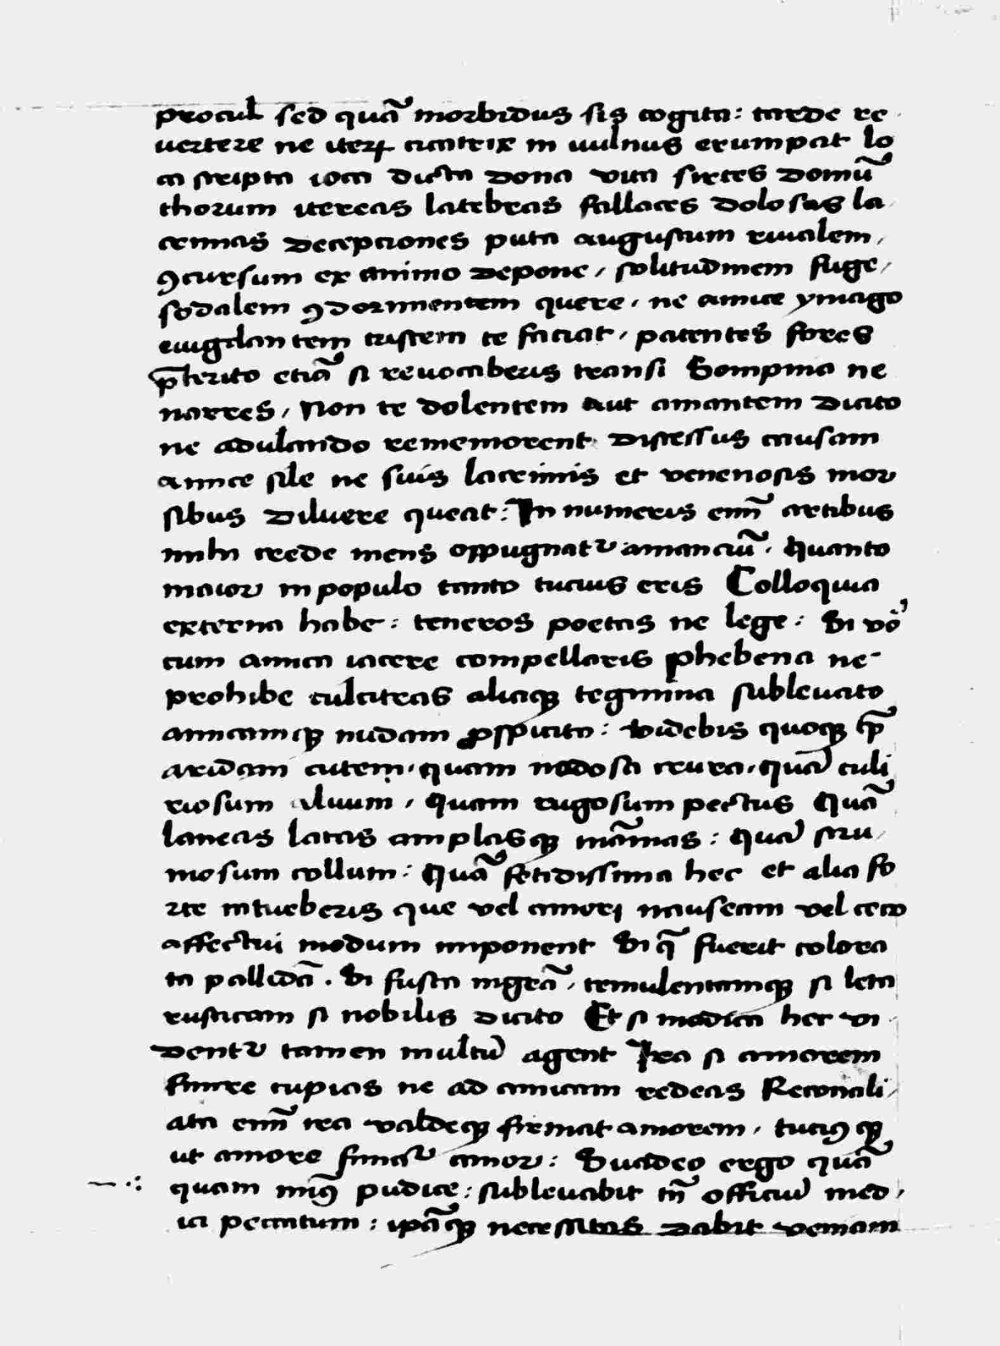 procul sed quā morbidus sis cogita: tarde re
uertere ne iteꝝ cicatrix in uulnus erumpat lo
ca scripta ioca dicta dona vita sirtes domū
thorum itereas latebras fallaces dolosas la
crimas decepciones puta augustum riualem,
ꝯcursum ex animo depone, solitudinem fuge,
sodalem ꝯdormientem quere, ne amice ymago
euigilantem tristem te faciat, patentes fores
p̄terito etiā si reuocaberis transi Sompnia ne
narres, Non te dolentem aut amantem dicito
ne adulando rememorent discessus causam
amice sile ne suis lacrimis et venenosis mor
sibus diluere queat: In numeris enī artibus
mihi crede mens oppugnatᷣ amanciū. Quanto
maior in populo tanto tucius eris Colloquia
externa habe: teneros poetas ne lege: Si vō
cum amica iacere compellaris phebena ne
prohibe culcitras aliaqꝫ tegmina subleuato
amicamqꝫ nudam ꝓspicito: Videbis quoqꝫ qᷓ
aridam cutem, quam nodosa crura, quā culi
riosum aluum, quam rugosum pectus Quā
laneas latas amplasqꝫ māmas: quā stru
mosum collum: Quā fetidissima hec et alia fo
rte intueberis que vel amori nauseam vel ceco
affectui modum imponent Si qᷓ fuerit colora
ta pallidā. Si fusca nigrā, temulentamqꝫ si leta
rusticam si nobilis dicito Et si modica hec vi
dentᷣ tamen multū agent Ira si amorem
finire cupias ne ad amicam redeas Reconcili
ata enī ira valdeqꝫ firmat amorem, tuciꝰqꝫ
ut amore finiatᷣ amor: Suadeo ergo quā
quam minꝰ pudice: subleuabit tn̄ officiū med
ici peccatum: ipāqꝫ necessitas dabit veniam